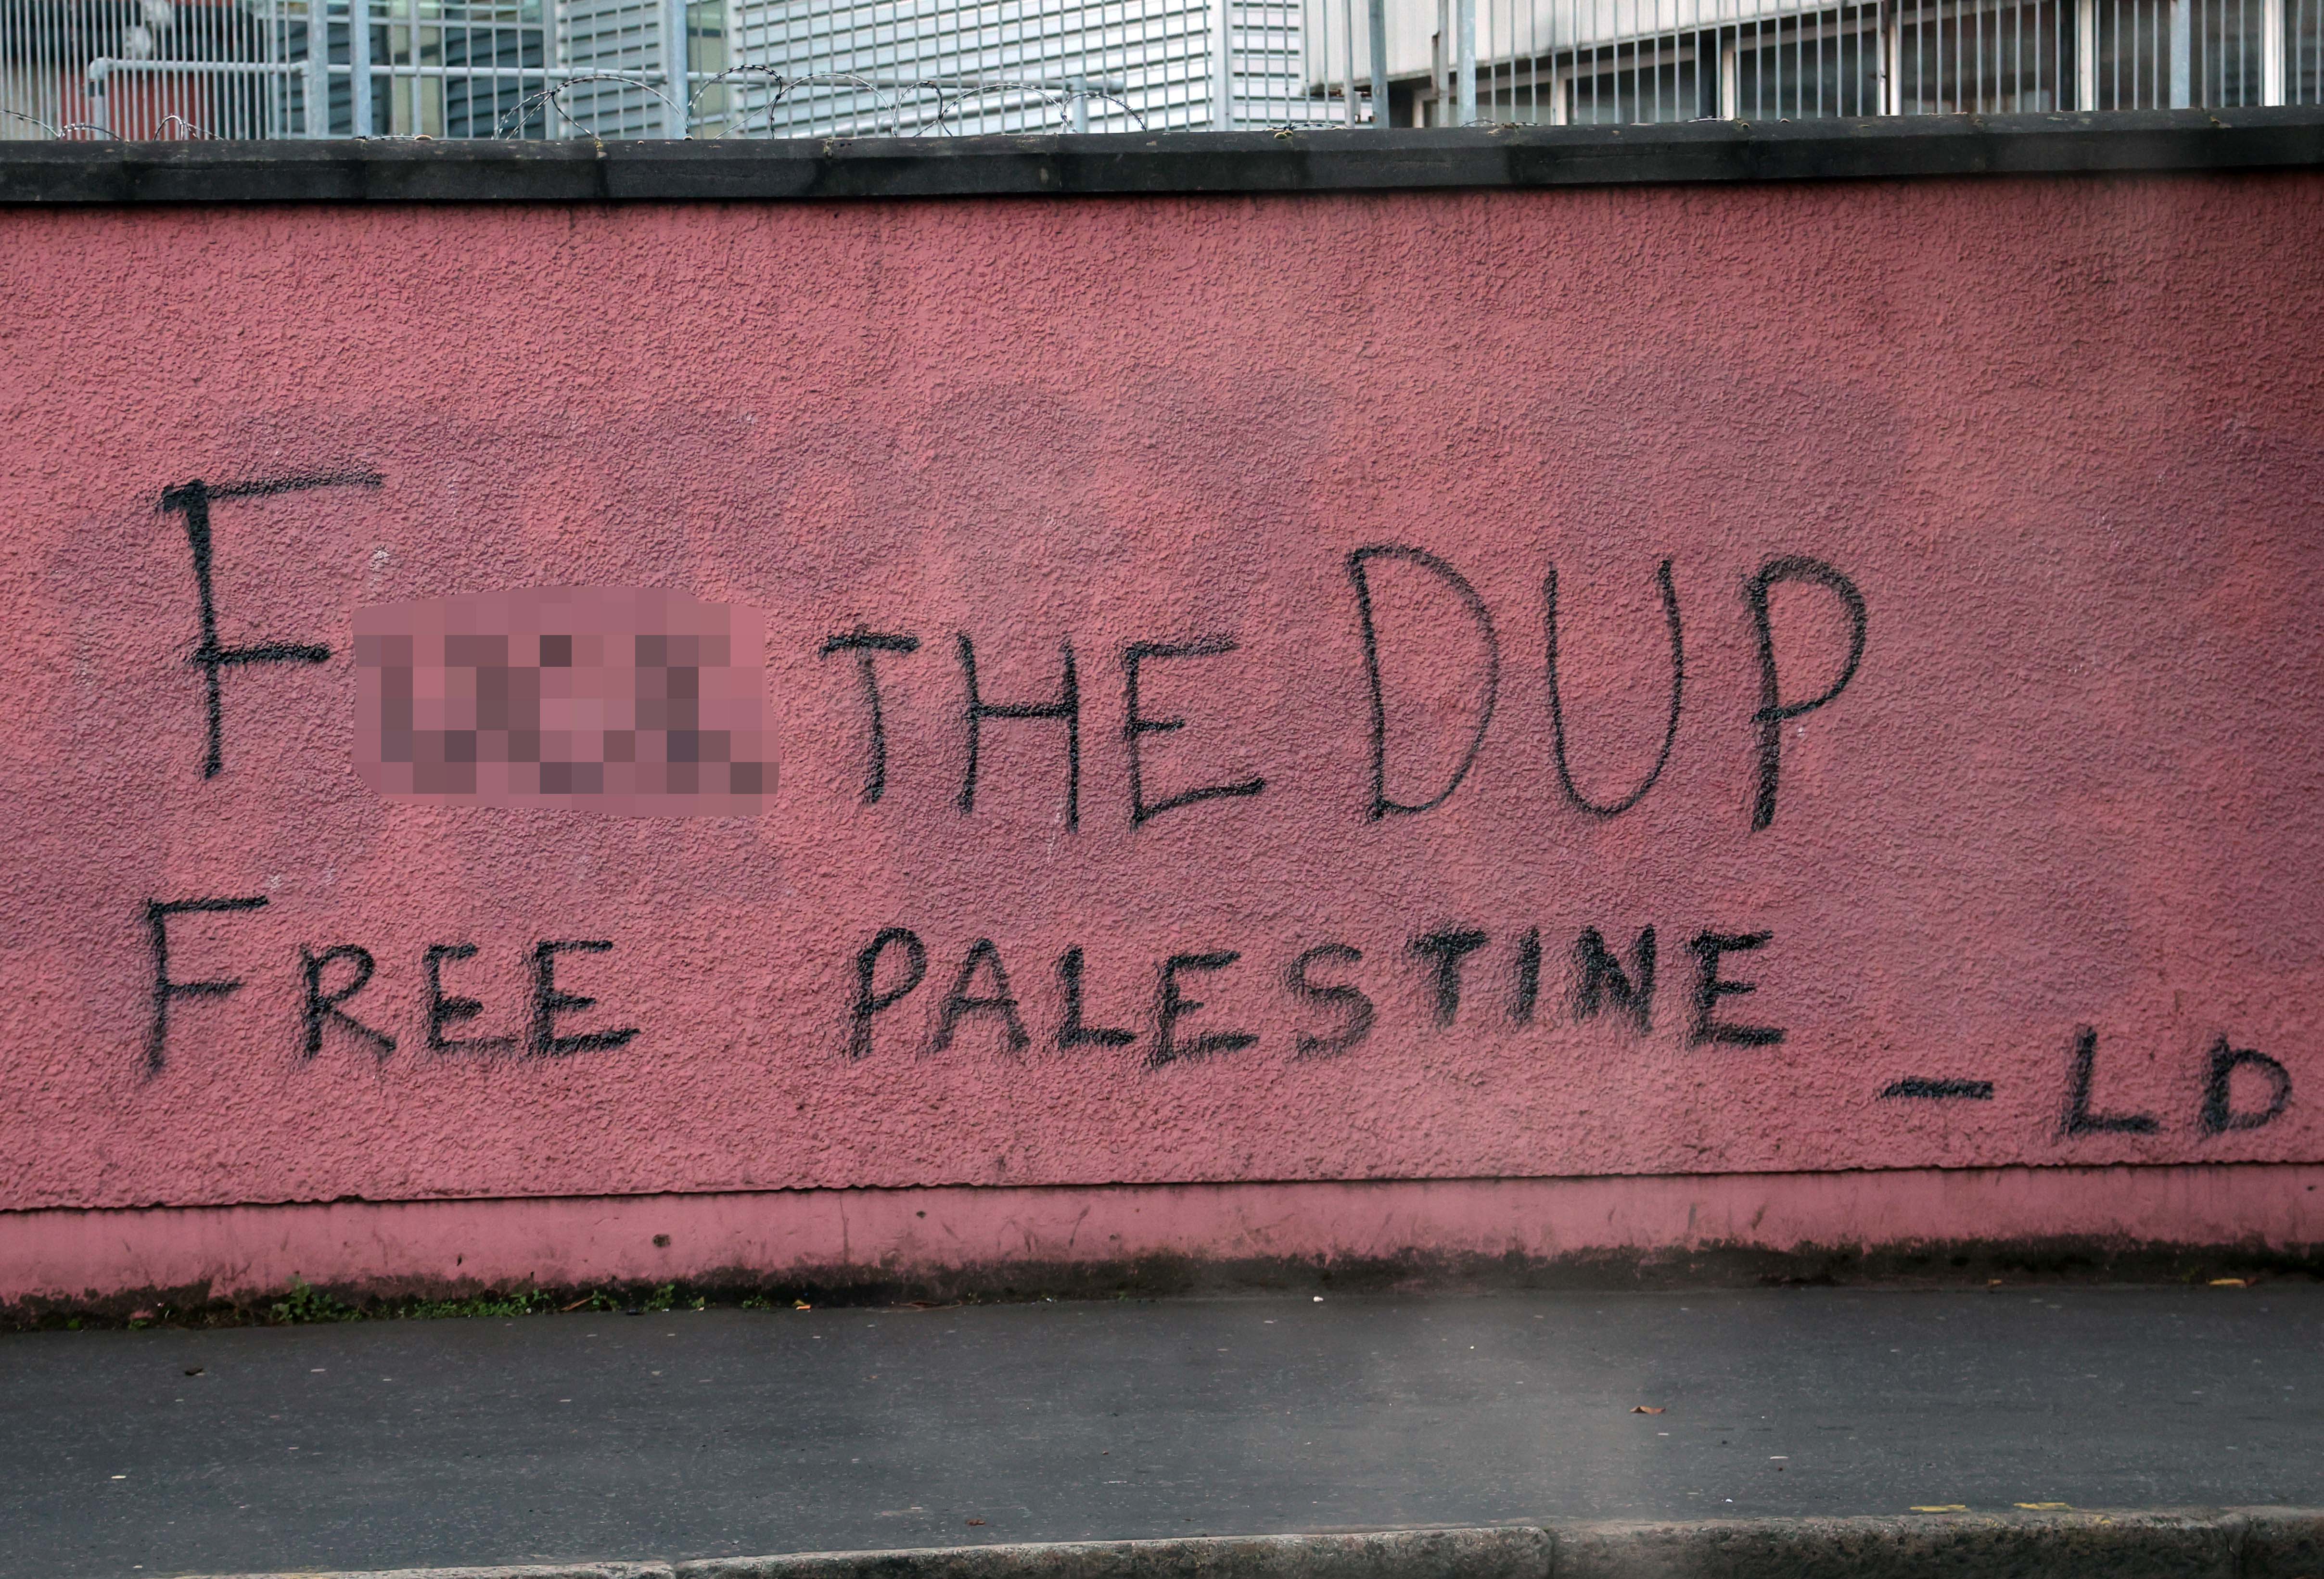 F THE DUP
FREE PALESTINE
- LD